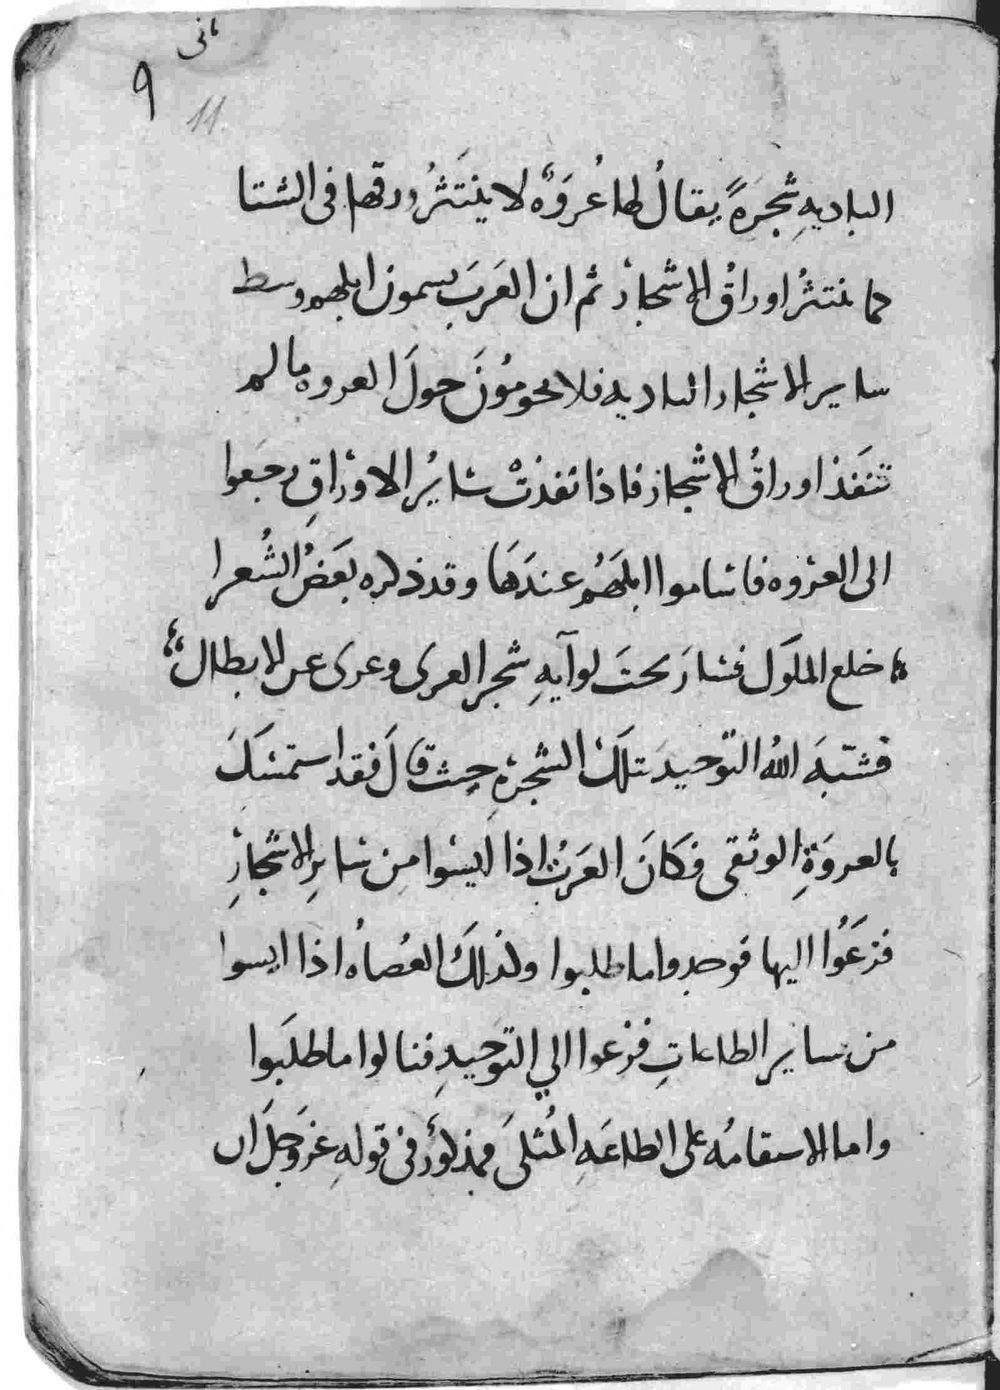 ثانى
٩
11.
الباديهِ شجَرةً يقالُ لها عُروَة لا ينتَثرُ ورقها فى الشتا
كما ينتثرُ اوراقُ الاشجار ثم ان العَرَب يسمون ابلهم وسط
ساير الاشجار الباديه فلا يحومُونَ حولَ العروه ما لم
تنفَذ اوراقُ الاشجار فاذا نفذتْ سَايرُ الاوراقِ رجَعوا
الى العروه فاساموا ابلهُم عندَهَا وقد ذكره بعَضُ الشُعرا
خلع الملوَك فسَارَ تحتَ لوآيهِ شجر العرى وعرى عن الابطال
فشبّهَ اللهُ التوّحيدَ بتلكَ الشجرهِ حيث قالَ فقد استمسَكَ
بالعروَةِ الوثقى فكانَ العَربُ اذا ايسُوا مِن سَايرِ الاشجارِ
فزعَوُا اليها فوجدوا ما طلبوا وكذلكَ العُصاهُ اذا ايسوا
من ساير الطاعاتِ فزعوا الي التوَحيدِ فنالوا ما طلَبوا
واما الاستقامُه على الطاعَهِ المُثلىَ فمذكورٌ فى قولهِ عزَ وَجلَ ان